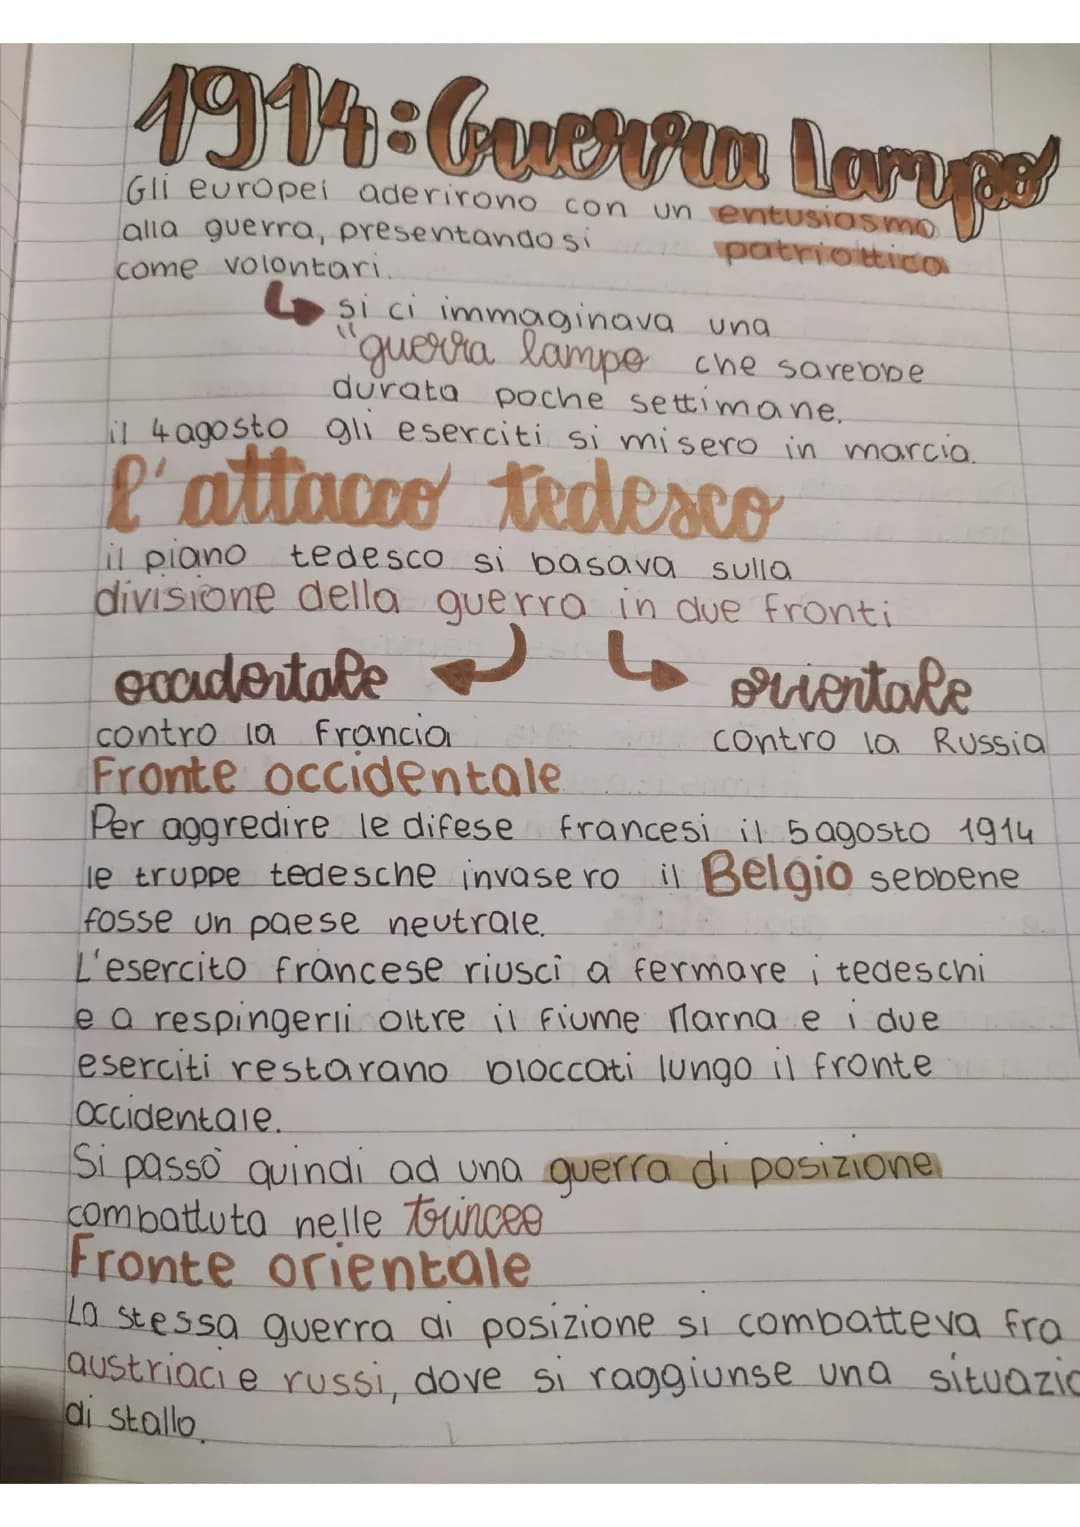 1914: Guerra Lampo
Gli europei aderirono con un entusiasmo
alla guerra, presentandosi patriottico
come volontari.
si ci immaginava una
"guerra lampo che sarebbe
durata poche settimane.
il 4 agosto gli eserciti si misero in marcia.
l'attacco tedesco
il piano tedesco si basava sulla
divisione della guerra in due fronti
occidentale orientale
contro la Francia contro la Russia
Fronte occidentale
Per aggredire le difese francesi il 5 agosto 1914
le truppe tedesche invasero il Belgio sebbene
fosse un paese neutrale.
L'esercito francese riuscì a fermare i tedeschi
e a respingerli oltre il fiume Marna e i due
eserciti restarano bloccati lungo il fronte
occidentale.
Si passò quindi ad una guerra di posizione
combattuta nelle trincee
Fronte orientale
La stessa guerra di posizione si combatteva fra
austriaci e russi, dove si raggiunse una situazio
di stallo.